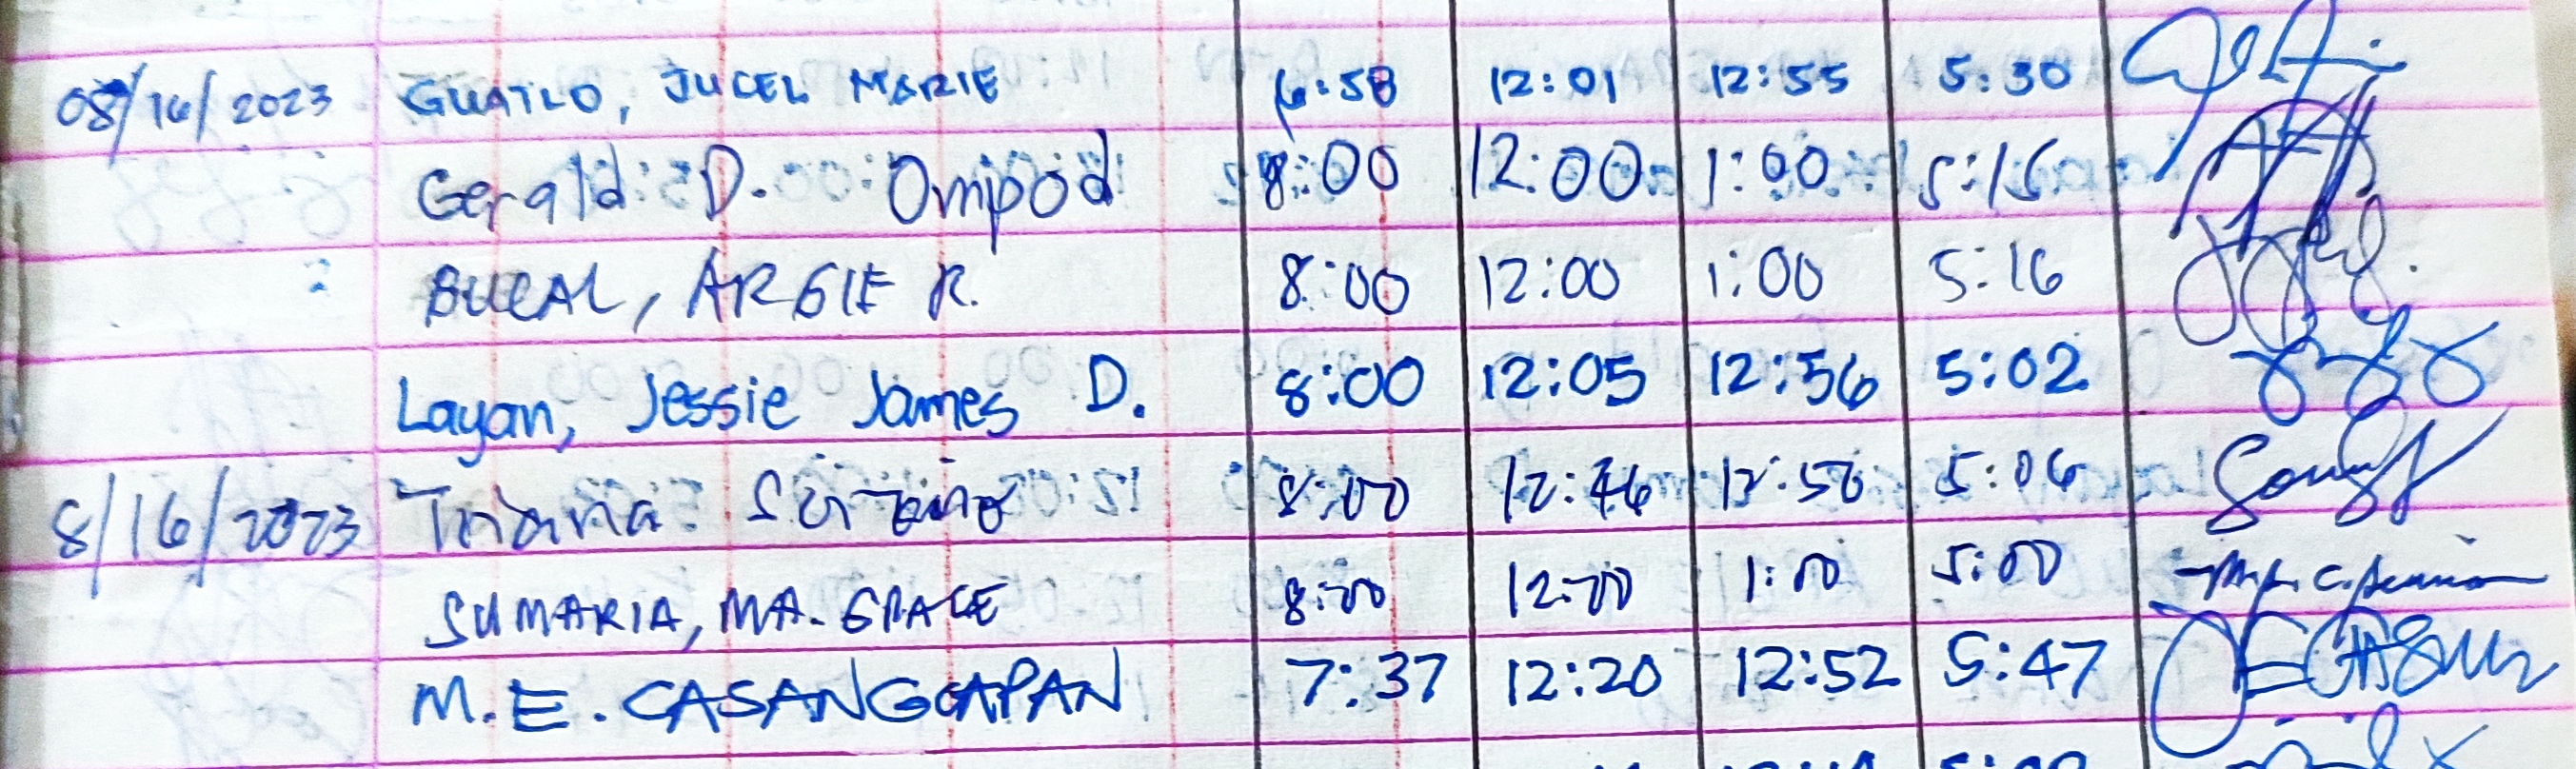 08/16/2023 GUATLO, JUCEL MARIE 6:58 12:01 12:55 5:30
Gerald D. Ompod 8:00 12:00 1:00 5:16
BUCAL, ARGIE R. 8:00 12:00 1:00 5:16
Layan, Jessie James D. 8:00 12:05 12:56 5:02
8/16/2023 8:00 12:46 12:56 5:06
SUMARIA, MA. GRACE 8:00 12:00 1:00 5:00
M.E. CASANGCAPAN 7:37 12:20 12:52 5:47